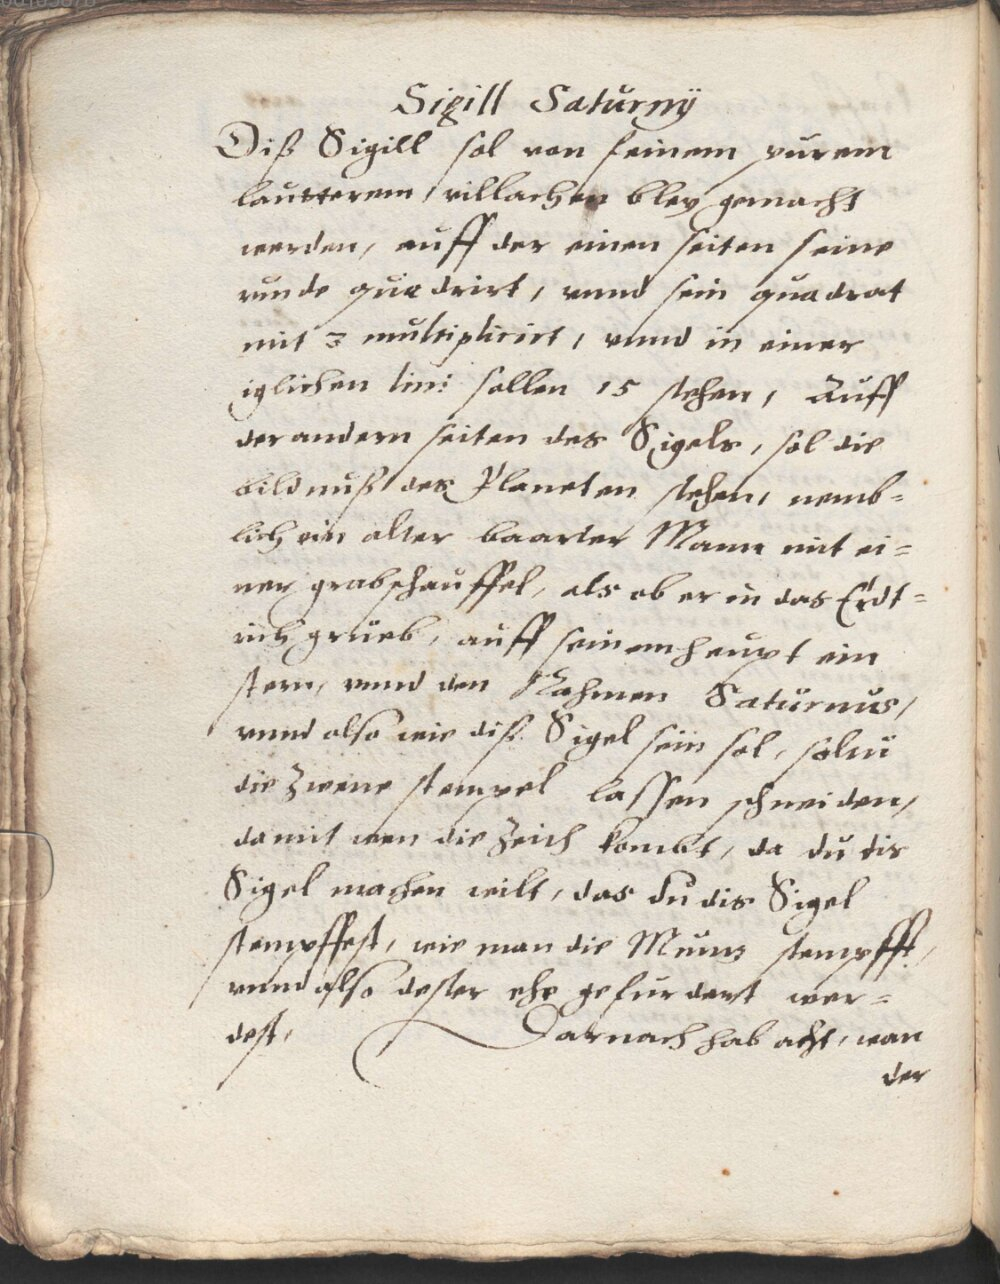 Sigill Saturnÿ
Diß Sigill sol von feinem purem
lautterem, villacher bley gemacht
werden, auff der einen seiten seine
runde quadrirt, vnnd sein quadrat
mit 3 multiplicirt, vnnd in einer
iglichen lini sollen 15 stehen, Auff
der andern seiten des Sigels, sol die
bildnuß des Planeten stehen, nemb=
lich ein alter baarter Mann mit ei=
ner grabschauffel, als ob er in das Erdt=
rich grüeb, auff seinem heupt ein
stern, vnnd den Nahmen Saturnus,
vnnd also wie diß Sigel sein sol, soltu
die zwene stempel lassen schneiden,
damit wen die Zeich kombt, da du dis
Sigel machen wilt, das du dis Sigel
stempffest, wie man die Müntz stempfft,
vnnd also dester ehe gefurdert wer=
dest, Darnach hab acht, wan
der